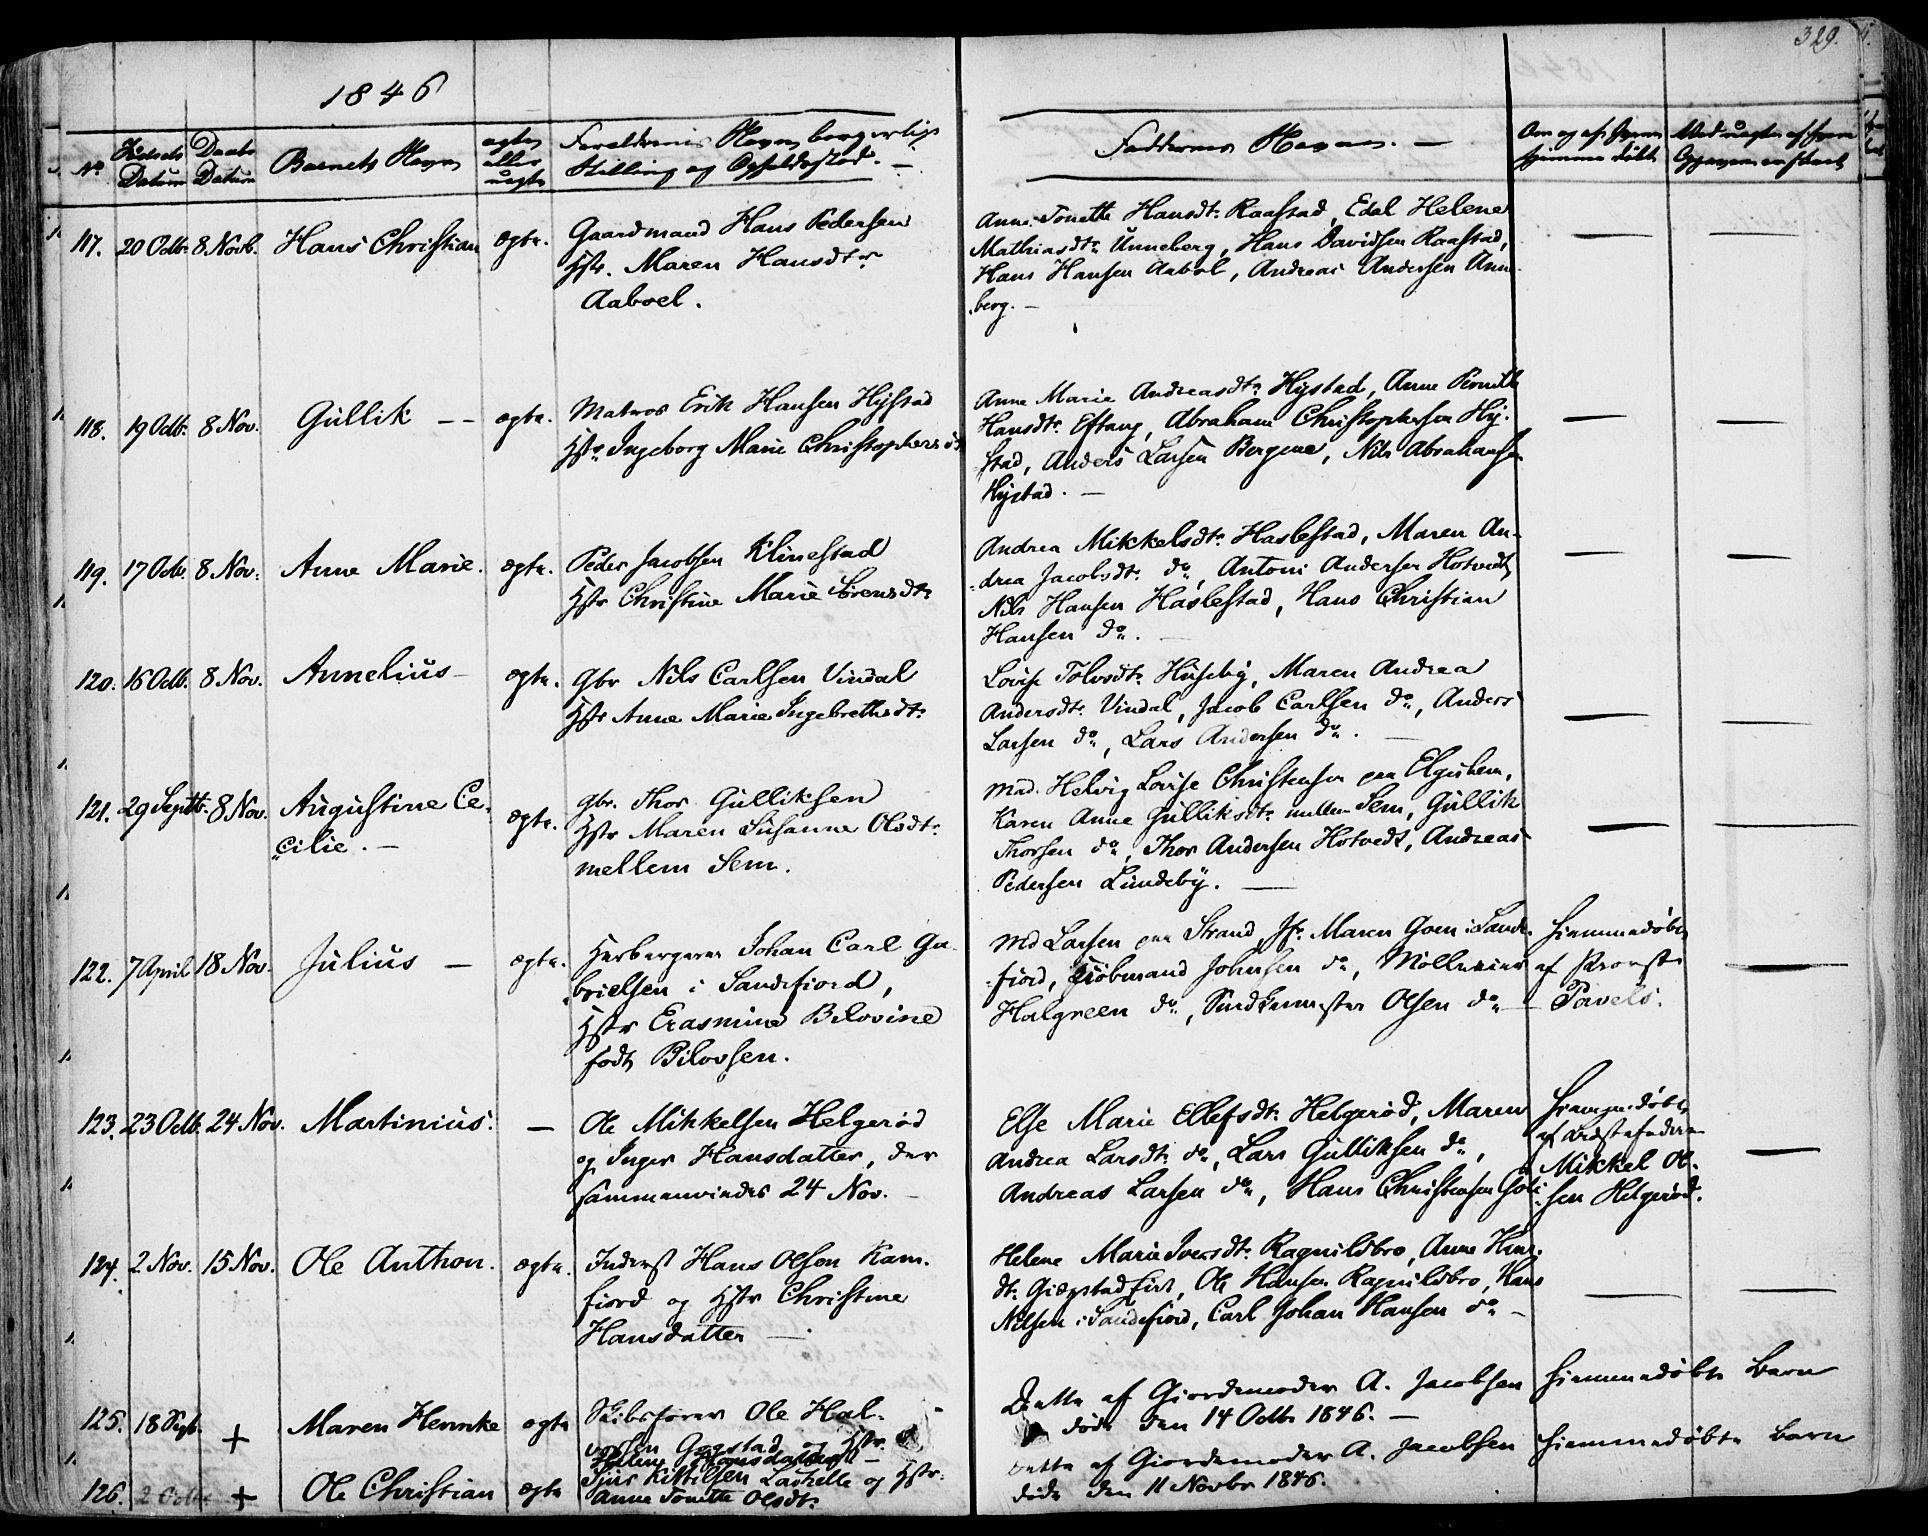 329.
1846
No Fødsels Datum Daabs Datum Barnets Navn ægte eller uægte Forældrenes Navn borgerlige Stilling og Opholdssted. —
Faddernes Navne. —
117. 20 Octb. 8 Novb. Hans Christian ægte. Gaardmand Hans Pedersen
Hstr. Maren Hansdtr
Aaboel.
Anne Tonette Hansdtr Raastad, Edel Helene
Mathiasdtr Unneberg, Hans Davidsen Raastad,
Hans Hansen Aabol, Andreas Andersen Unne-
berg. —
118. 19 Octb. 8 Nov. Gullik — — ægte. Matros Erik Hansen Hystad
Hstr Ingeborg Marie Christophersdt
Anne Marie Andreasdtr Hystad, Anne Pernille
Hansdtr Eftang, Abraham Christophersen Hy-
stad, Anders Larsen Bergene, Nils Abrahamsen
Hystad. —
119. 17 Octb 8 Nov. Anne Marie. ægte. Peder Jacobsen Klinestad
Hstr Christine Marie Sørensdtr
Andrea Mikkelsdtr Haslestad, Maren An-
drea Jacobsdtr do, Antoni Andersen Hotvedt,
Nils Hansen Haslestad, Hans Christian
Hansen do. —
120. 16 Octb. 8 Nov. Annelius — ægte. Gbr Nils Carlsen Vindal
Hstr Anne Marie Ingebrethsdtr
Lovise Tolvsdtr Huseby, Maren Andrea
Andersdtr Vindal, Jacob Carlsen do, Anders
Larsen do, Lars Andersen do. —
121. 29 Septb. 8 Nov. Augustine Ce-
cilie. — ægte. Gbr. Thor Gulliksen
Hstr Maren Susanne Olsdtr
mellem Sem.
Mad. Helvig Lovise Christensen paa Elgesem,
Karen Anne Gulliksdtr mellem Sem, Gullik
Thorsen do, Thor Andersen Hotvedt, Andreas
Pedersen Lundeby. —
122. 7 April 18 Nov. Julius — ægte. Herbergerer Johan Carl Ga-
brielsen i Sandefiord,
Hstr Erasmine Bilovine
født Bilovsen.
Md Larsen paa Strand, Jfr Maren Goen i Sande-
fiord, Kiøbmand Johnsen do, Møllereier
Halgreen do, Smedemester Olsen do —
Hiemmedøbt
af Provst
Pavels.
123. 23 Octb. 24 Nov. Martinius. — Ole Mikkelsen Helgerød
og Inger Hansdatter, der
sammenviedes 24 Nov. —
Else Marie Ellefsdtr Helgerød, Maren
Andrea Larsdtr do, Lars Gulliksen do,
Andreas Larsen do, Hans Christensen
Hiemmedøbt
Mikkel Ol-
sen Helgerød.
124. 2 Nov. 15 Nov. Ole Anthon. ægte. Inderst Hans Olsen Kam-
fiord og Hstr Christine
Hansdatter —
Helene Marie Iversdtr Ragnildbro, Anne
Ole Hansen Ragnildbro, Hans
Nilsen i Sandefiord, Carl Johan Hansen do —
125. 18 Sept. + Maren Henrike ægte Skibsfører Ole Hal-
vorsen Gogstad og Hstr
Helene Hansdatter —
Døbt af Giordemoder A. Jacobsen hiemmedøbte Barn
døde den 14 Octb 1846. —
126. 2 Octb + Ole Christian ægte Kittilsen Laskelle og Hstr.
Anne Tonette Olsdtr
Dette af Giordemoder A. Jacobsen hiemmedøbte Barn
døde den 11 Novbr 1846.